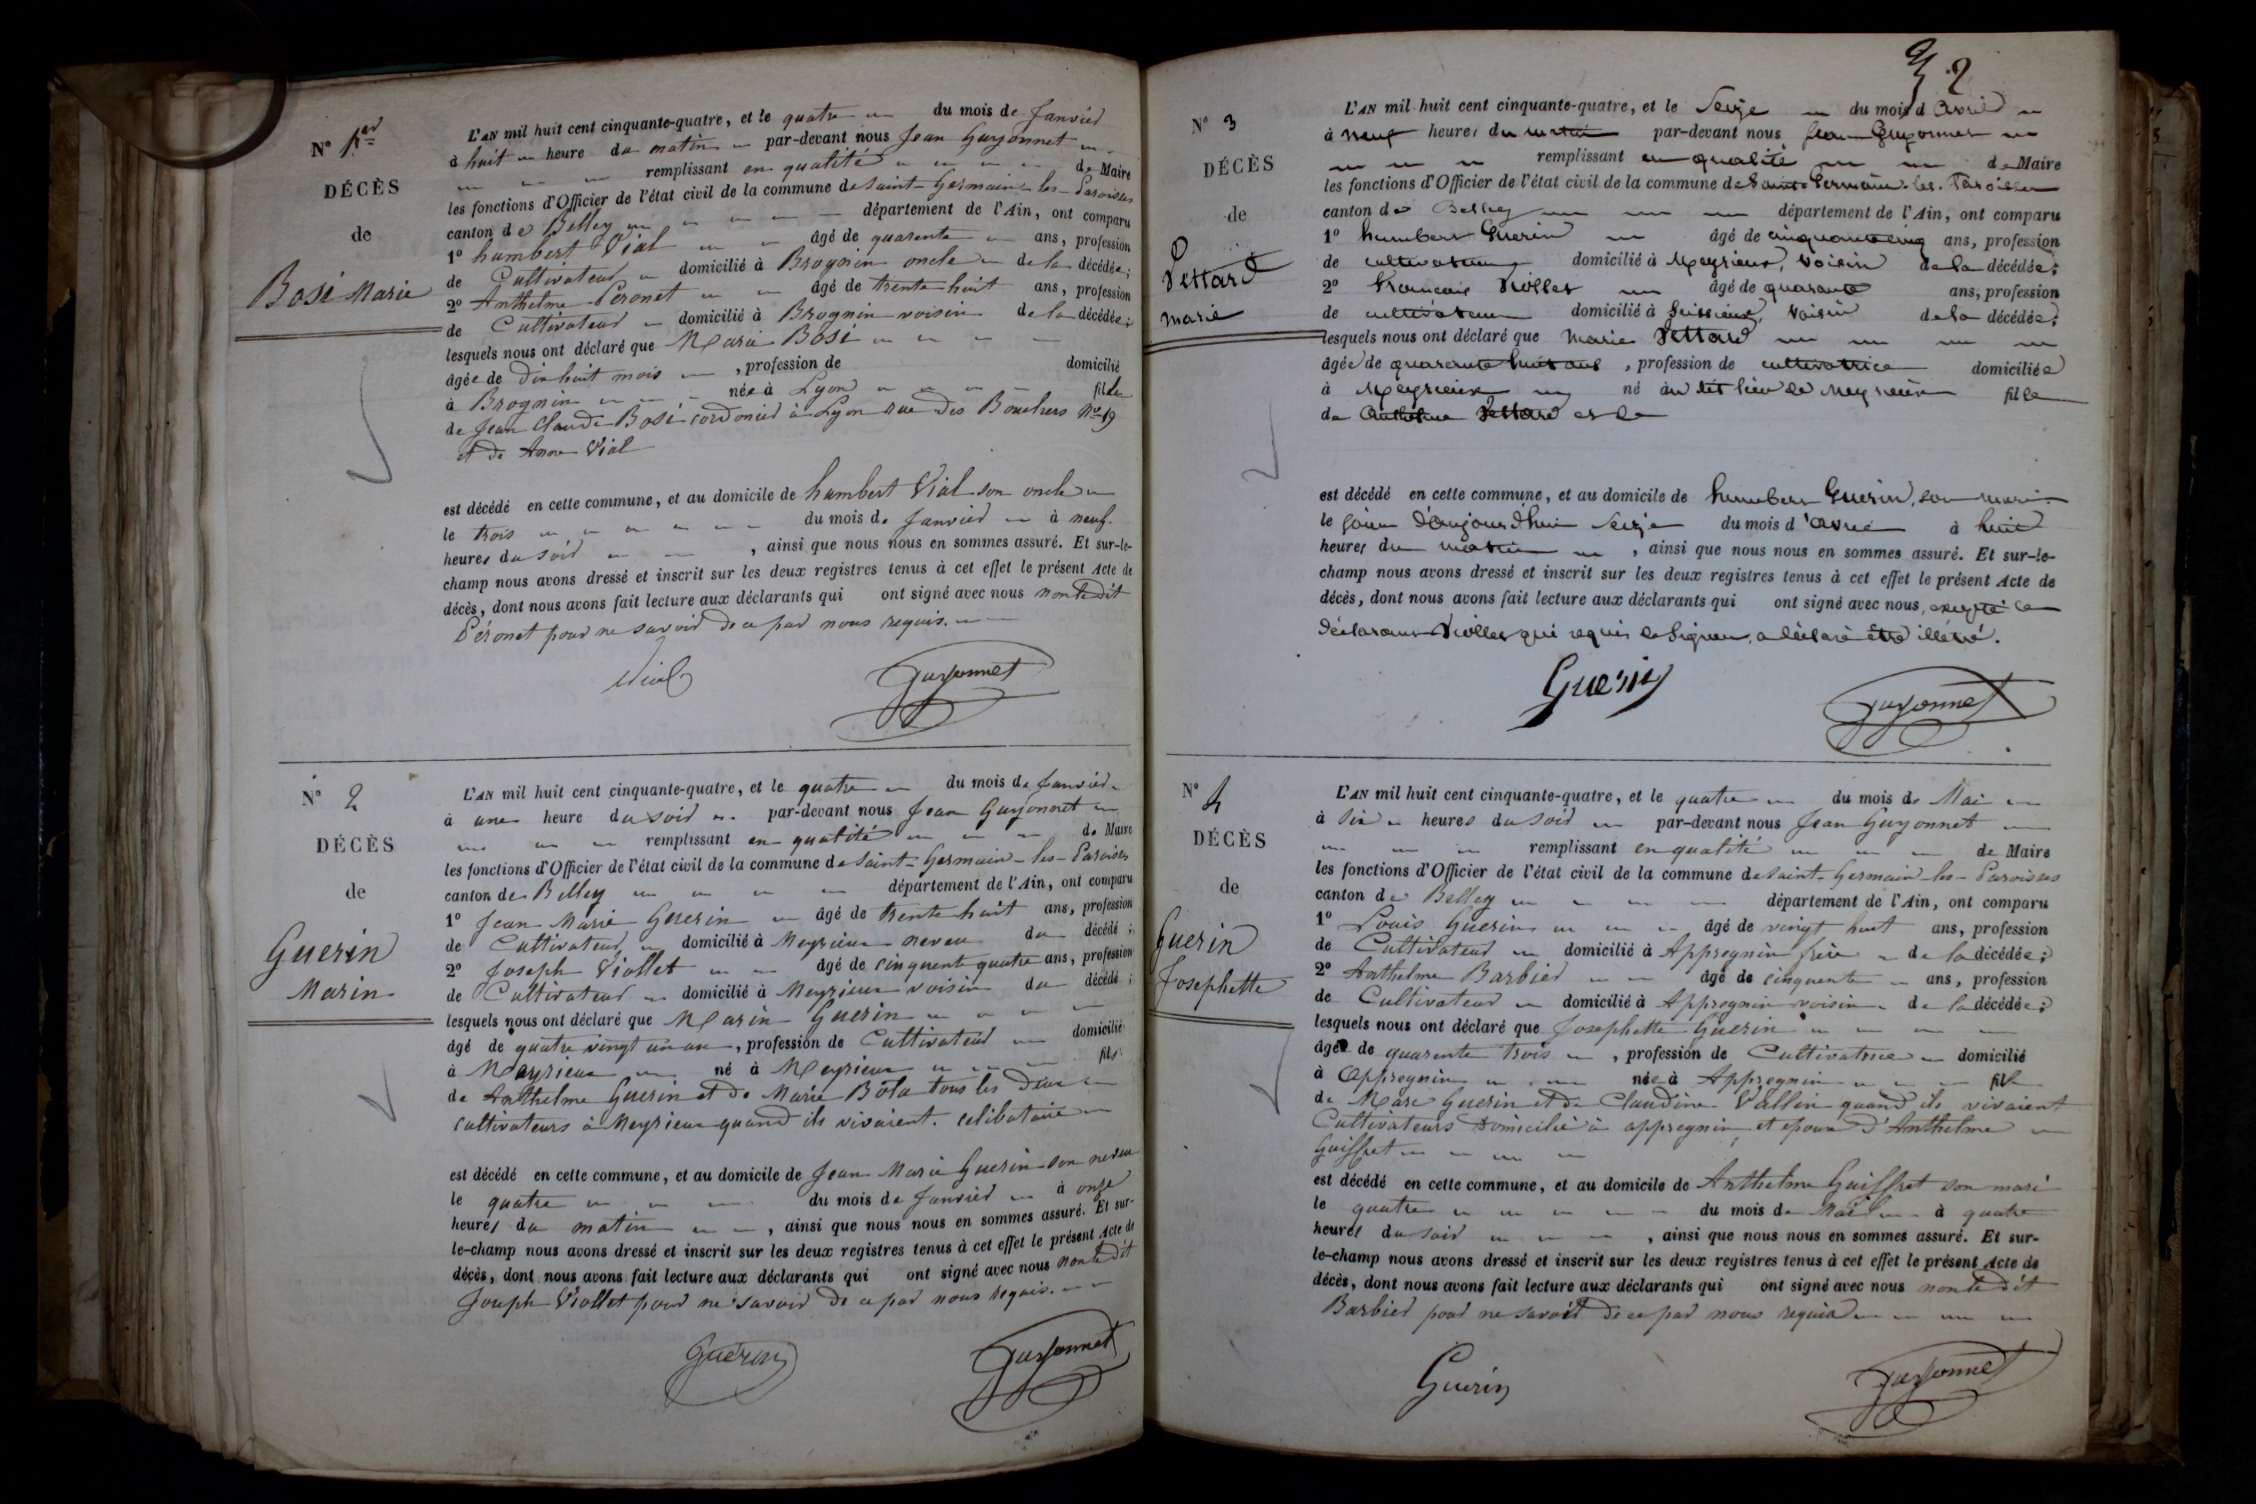 N° 1er
DÉCÈS
de
Bosi Marie
L'AN mil huit cent cinquante-quatre, et le quatre du mois de Janvier
à huit heure du matin par-devant nous Jean Guyonnet
remplissant en qualité de Maire
les fonctions d'Officier de l'état civil de la commune de Saint-Germain-les-Paroisses
canton de Belley département de l'Ain, ont comparu
1° humbert Vial âgé de quarente ans, profession
de Cultivateur domicilié à Brognin oncle de la décédée;
2° Anthelme Peronet âgé de trente huit ans, profession
de Cultivateur domicilié à Brognin voisin de la décédée;
lesquels nous ont déclaré que Marie Bosi
âgée de dix huit mois, profession de domicilié
à Brognin née à Lyon fille
de Jean Claude Bosi cordonier à Lyon rue des Bouchers No 19
et de Anne Vial
est décédé en cette commune, et au domicile de humbert Vial son oncle
le trois du mois de Janvier à neuf
heures du soir, ainsi que nous nous en sommes assuré. Et sur-le-
champ nous avons dressé et inscrit sur les deux registres tenus à cet effet le présent Acte de
décès, dont nous avons fait lecture aux déclarants qui ont signé avec nous non le dit
Péronet pour ne savoir de ce par nous requis.
Vial Guyonnet
N° 2
DÉCÈS
de
Guerin
Marin
L'AN mil huit cent cinquante-quatre, et le quatre du mois de Janvier
à une heure du soir par-devant nous Jean Guyonnet
remplissant en qualité de Maire
les fonctions d'Officier de l'état civil de la commune de Saint-Germain-les-Paroisses
canton de Belley département de l'Ain, ont comparu
1° Jean Marie Guerin âgé de trente huit ans, profession
de Cultivateur domicilié à Meyrieux neveu du décédé;
2° Joseph Viollet âgé de cinquente quatre ans, profession
de Cultivateur domicilié à Meyrieux voisin du décédé;
lesquels nous ont déclaré que Marin Guerin
âgé de quatre vingt un an, profession de Cultivateur domicilié
à Meyrieux né à Meyrieux fils
de Anthelme Guerin et de Marie Bota tous les deux
cultivateurs à Meyrieux quand ils vivaient. celibataire
est décédé en cette commune, et au domicile de Jean Marie Guerin son neveu
le quatre du mois de Janvier à onze
heures du matin, ainsi que nous nous en sommes assuré. Et sur-
le-champ nous avons dressé et inscrit sur les deux registres tenus à cet effet le présent Acte de
décès, dont nous avons fait lecture aux déclarants qui ont signé avec nous non le dit
Joseph Viollet pour ne savoir de ce par nous requis.
Guérin Guyonnet
2
N° 3
DÉCÈS
de
Vettard
marie
L'AN mil huit cent cinquante-quatre, et le Seize du mois d avril
à neuf heures du matin par-devant nous Jean Guyonnet
remplissant en qualité de Maire
les fonctions d'Officier de l'état civil de la commune de Saint-Germain-les-Paroisses
canton de Belley département de l'Ain, ont comparu
1° humbert Guerin âgé de cinquante cinq ans, profession
de cultivateur domicilié à Meyrieux, voisin de la décédée;
2° francois Viollet âgé de quarante ans, profession
de cultivateur domicilié à voisin de la décédée;
lesquels nous ont déclaré que marie Vettard
âgée de quarante huit ans, profession de cultivatrice domiciliée
à Meyrieux né au dit lieu de Meyrieux fille
de Anthelme Vettard et de
est décédé en cette commune, et au domicile de humbert Guerin, son mari
le jour d'aujourd'hui Seize du mois d'avril à huit
heures du matin, ainsi que nous nous en sommes assuré. Et sur-le-
champ nous avons dressé et inscrit sur les deux registres tenus à cet effet le présent Acte de
décès, dont nous avons fait lecture aux déclarants qui ont signé avec nous, excepté le
déclarant Viollet qui requis de signer, a déclaré être illétré.
Guerin Guyonnet
N° 4
DÉCÈS
de
Guerin
Josephette
L'AN mil huit cent cinquante-quatre, et le quatre du mois de Mai
à six heures du soir par-devant nous Jean Guyonnet
remplissant en qualité de Maire
les fonctions d'Officier de l'état civil de la commune de Saint-Germain-les-Paroisses
canton de Belley département de l'Ain, ont comparu
1° Louis Guerin âgé de vingt huit ans, profession
de Cultivateur domicilié à Appregnin frère de la décédée;
2° Anthelme Barbier âgé de cinquente ans, profession
de Cultivateur domicilié à Appregnin voisin de la décédée;
lesquels nous ont déclaré que Josephette Guerin
âgée de quarente trois, profession de Cultivatrice domicilié
à Appregnin née à Appregnin fille
de Marc Guerin et de Claudine Vallin quand ils vivaient
Cultivateurs domicilié à appregnin, et epouse d'Anthelme
Guiffret
est décédé en cette commune, et au domicile de Anthelme Guiffret son mari
le quatre du mois de Mai à quatre
heures du soir, ainsi que nous nous en sommes assuré. Et sur-
le-champ nous avons dressé et inscrit sur les deux registres tenus à cet effet le présent Acte de
décès, dont nous avons fait lecture aux déclarants qui ont signé avec nous non le dit
Barbier pour ne savoir de ce par nous requis
Guerin Guyonnet